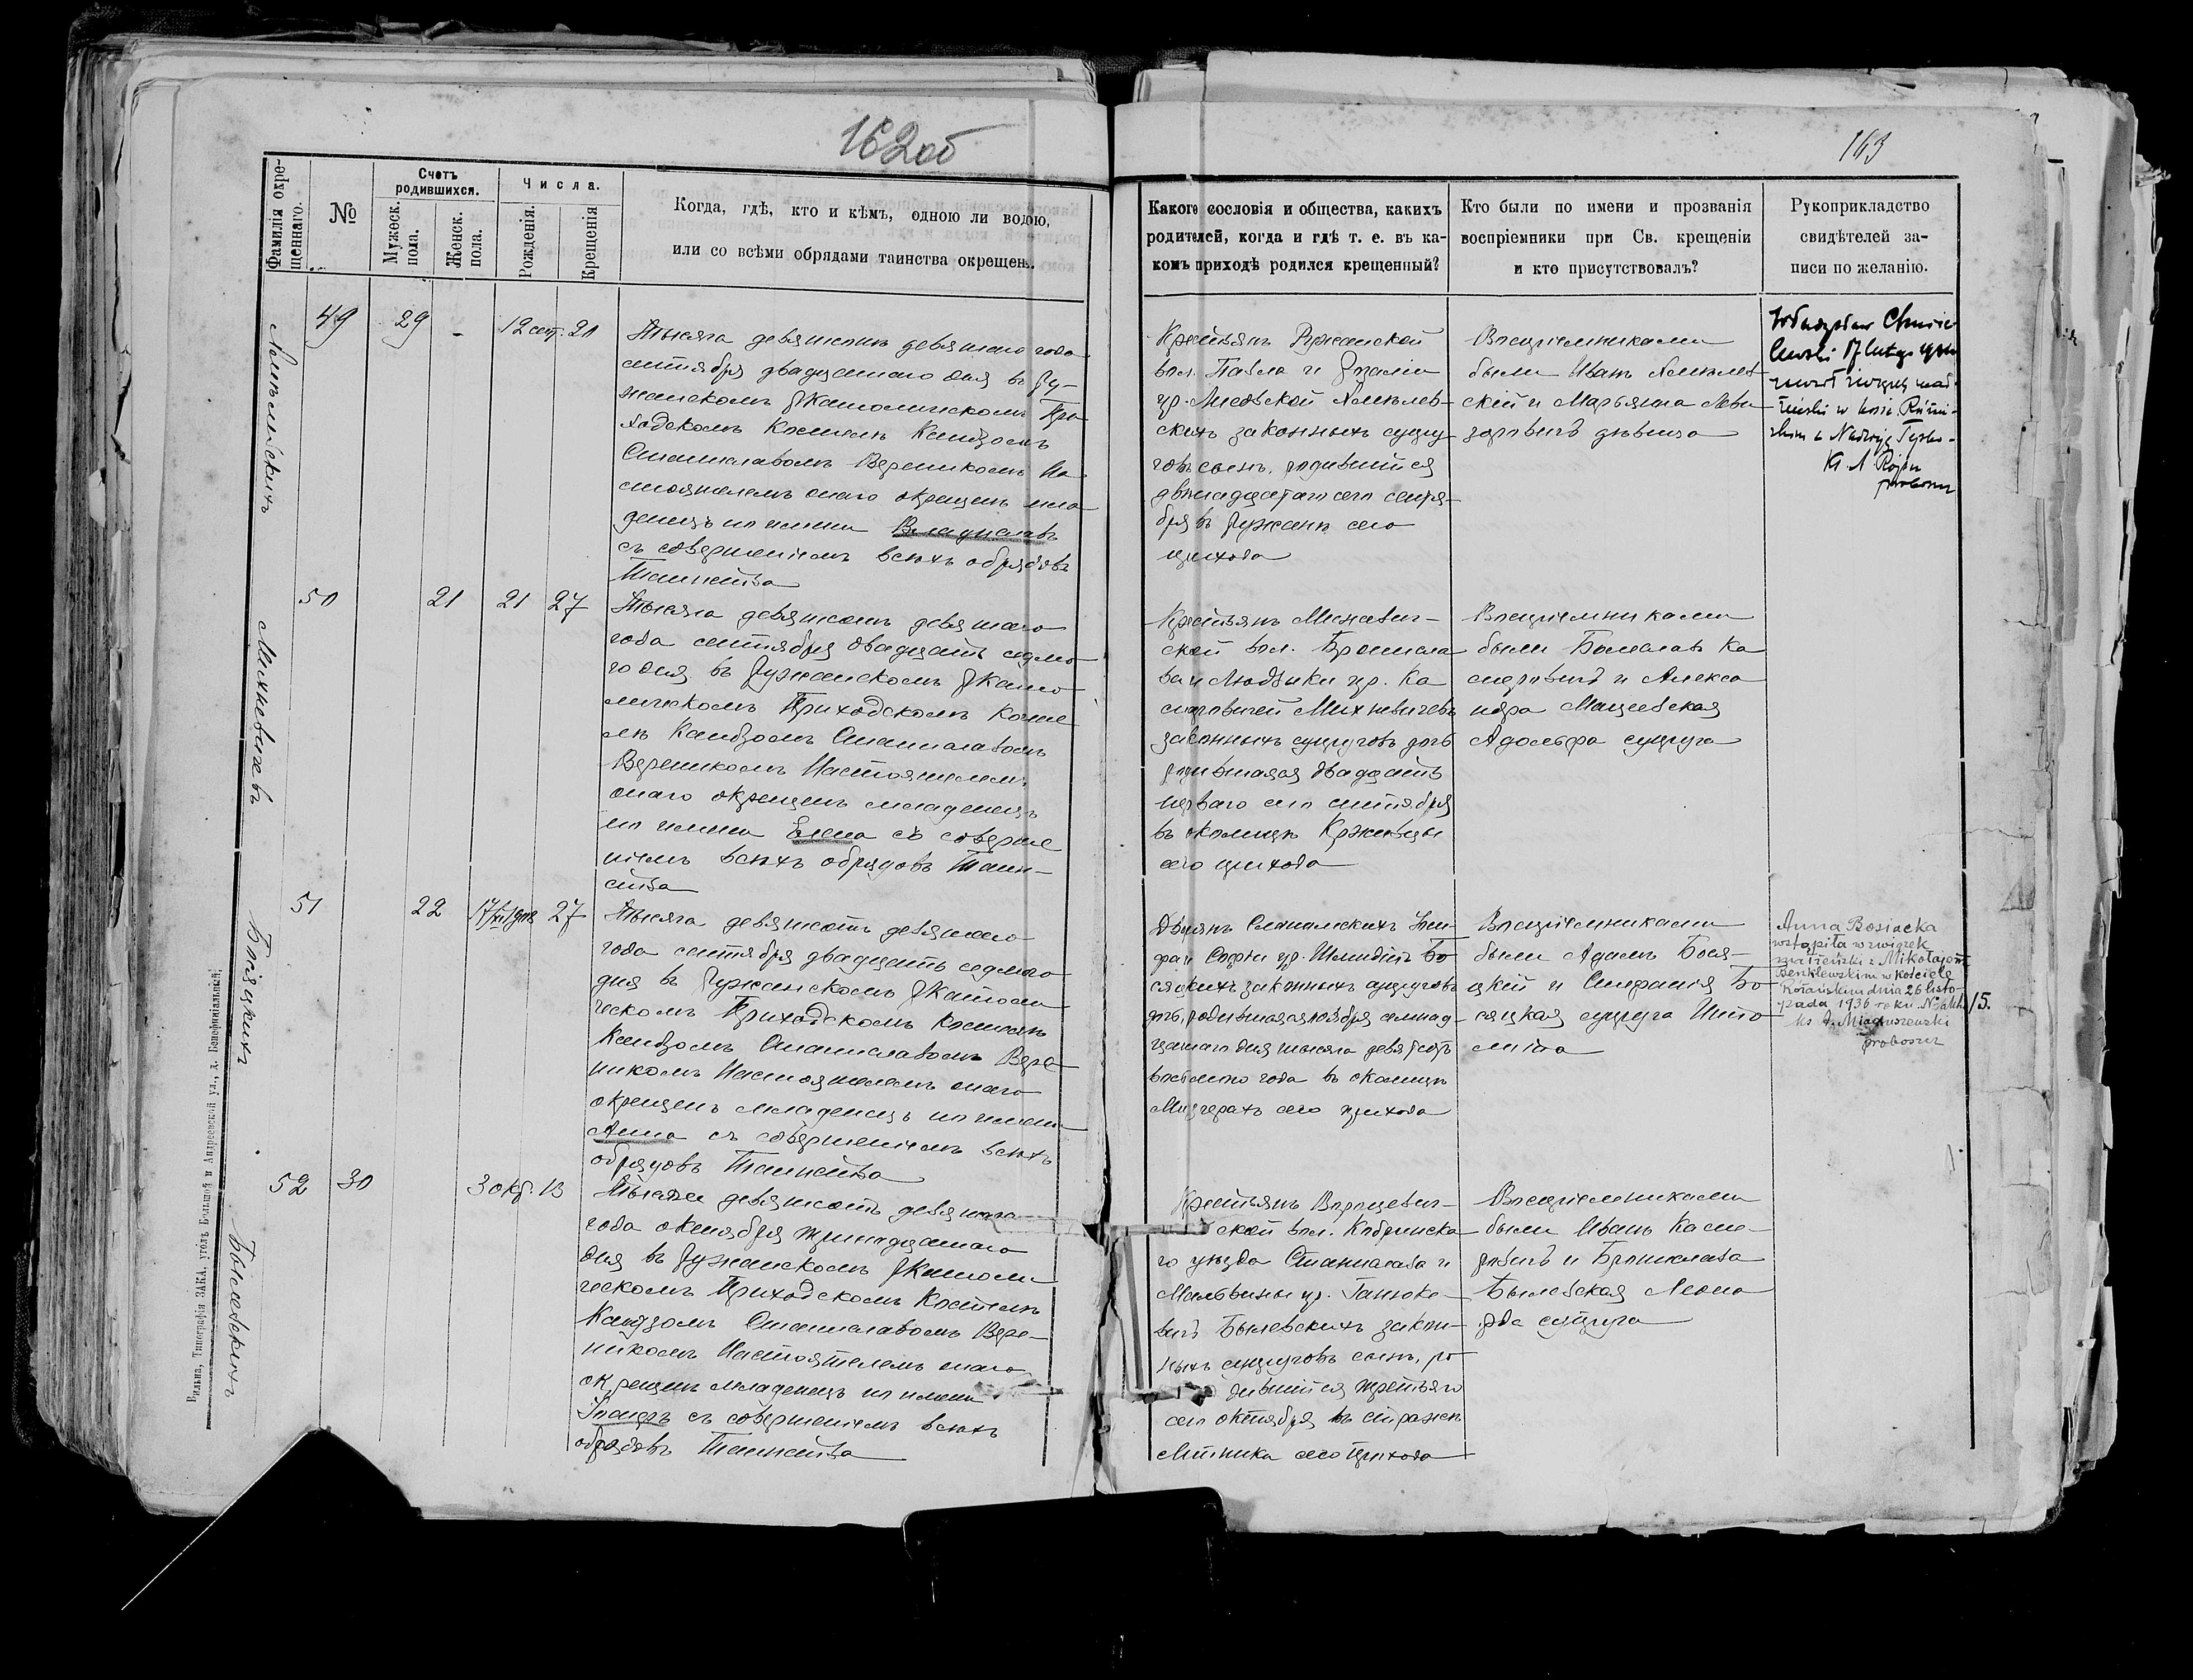 162об
163
Фамилія окре-
щеннаго.
№
Счетъ
родившихся.
Мужеск.
пола.
Женск.
пола.
Числа.
Рожденія.
Крещенія
Когда, гдѣ, кто и кѣмъ, одною ли водою,
или со всѣми обрядами таинства окрещенъ.
Какого сословія и общества, какихъ
родителей, когда и гдѣ т. е. въ ка-
комъ приходѣ родился крещенный?
Кто были по имени и прозванія
воспріемники при Св. крещеніи
и кто присутствовалъ?
Рукоприкладство
свидѣтелей за-
писи по желанію.
49 29 - 12 сент. 21
Тысяча девятьсотъ девятаго года
сентября двадцатаго дня въ Ру-
жанскомъ Р Католическомъ При
ходскомъ Костелѣ Ксендзомъ
Станиславомъ Вереникомъ На
стоятелемъ онаго окрещенъ мла
денецъ по имени Владиславъ
съ совершеніемъ всѣхъ обрядовъ
Таинства
Крестьянъ Ружанской
вол. Павла и
ур.
скихъ законныхъ супру
говъ сынъ, родившійся
двѣнадцатаго сего сентя-
бря въ Ружанѣ сего
прихода
Воспріемниками
были Иванъ
скій и Марьянна Леви
дѣвица
17 lutego
zawarł związek mał-
żeński w kośc. Różań-
skim z
proboszcz
50 21 21 27
Михневичевъ
Тысяча девятьсотъ девятаго
года сентября двадцать седьма
го дня въ Ружанскомъ Р Като
лическомъ Приходскомъ Косте
лѣ Ксендзомъ Станиславомъ
Вереникомъ Настоятелемъ
онаго окрещенъ младенецъ
по имени Елена съ соверше
ніемъ всѣхъ обрядовъ Таин-
ства
Крестьянъ
ской вол. Бронисла
ва и Людвики ур. Ка
сперовичей Михневичевъ
законныхъ супруговъ дочь
родившаяся двадцать
перваго сего сентября
въ околицѣ Кржевицы
сего прихода
Воспріемниками
были Болеславъ Ка
сперовичъ и Алекса
ндра Мацеевская
Адольфа супруга
51 22 27
Босяцкихъ
Тысяча девятьсотъ девятаго
года сентября двадцать седьмаго
дня въ Ружанскомъ Р Католи
ческомъ Приходскомъ Костелѣ
Ксендзомъ Станиславомъ Вере
никомъ Настоятелемъ онаго
окрещенъ младенецъ по имени
Анна съ совершеніемъ всѣхъ
обрядовъ Таинства
Дворянъ Слонимскихъ
и Софіи ур. Бо
сяцкихъ законныхъ супруговъ
дочь, родившаяся ноября семнад
цатаго дня тысяча девятьсотъ
восьмаго года въ околицѣ
Мизгеряхъ сего прихода
Воспріемниками
были Адамъ Бося-
цкій и Стефанія Бо
сяцкая супруга Иппо
лита
Anna Bosiacka
wstąpiła w związek
małżeński z Mikołajem
Benklewskim w kościele
Różańskim dnia 26 listo-
pada 1936 roku. N. aktu 15.
ks A.
proboszcz
52 30 3 окт. 13
Былевскихъ
Тысяча девятьсотъ девятаго
года октября тринадцатаго
дня въ Ружанскомъ Р Католи
ческомъ Приходскомъ Костелѣ
Ксендзомъ Станиславомъ Вере-
никомъ Настоятелемъ онаго
окрещенъ младенецъ по имени
съ совершеніемъ всѣхъ
обрядовъ Таинства
Крестьянъ Вороцевич-
ской вол. Кобринска
го уѣзда Станислава и
Мальвины ур.
вичъ Былевскихъ закон-
ныхъ супруговъ сынъ, ро
дившійся третьяго
сего октября въ стражѣ
сего прихода
Воспріемниками
были Иванъ Каспе-
ровичъ и Бронислава
Былевская Леона
рда супруга
Вильна, Типографія ЗАКА, уголъ Большой и Андреевской ул., д. Бенефиціальный.